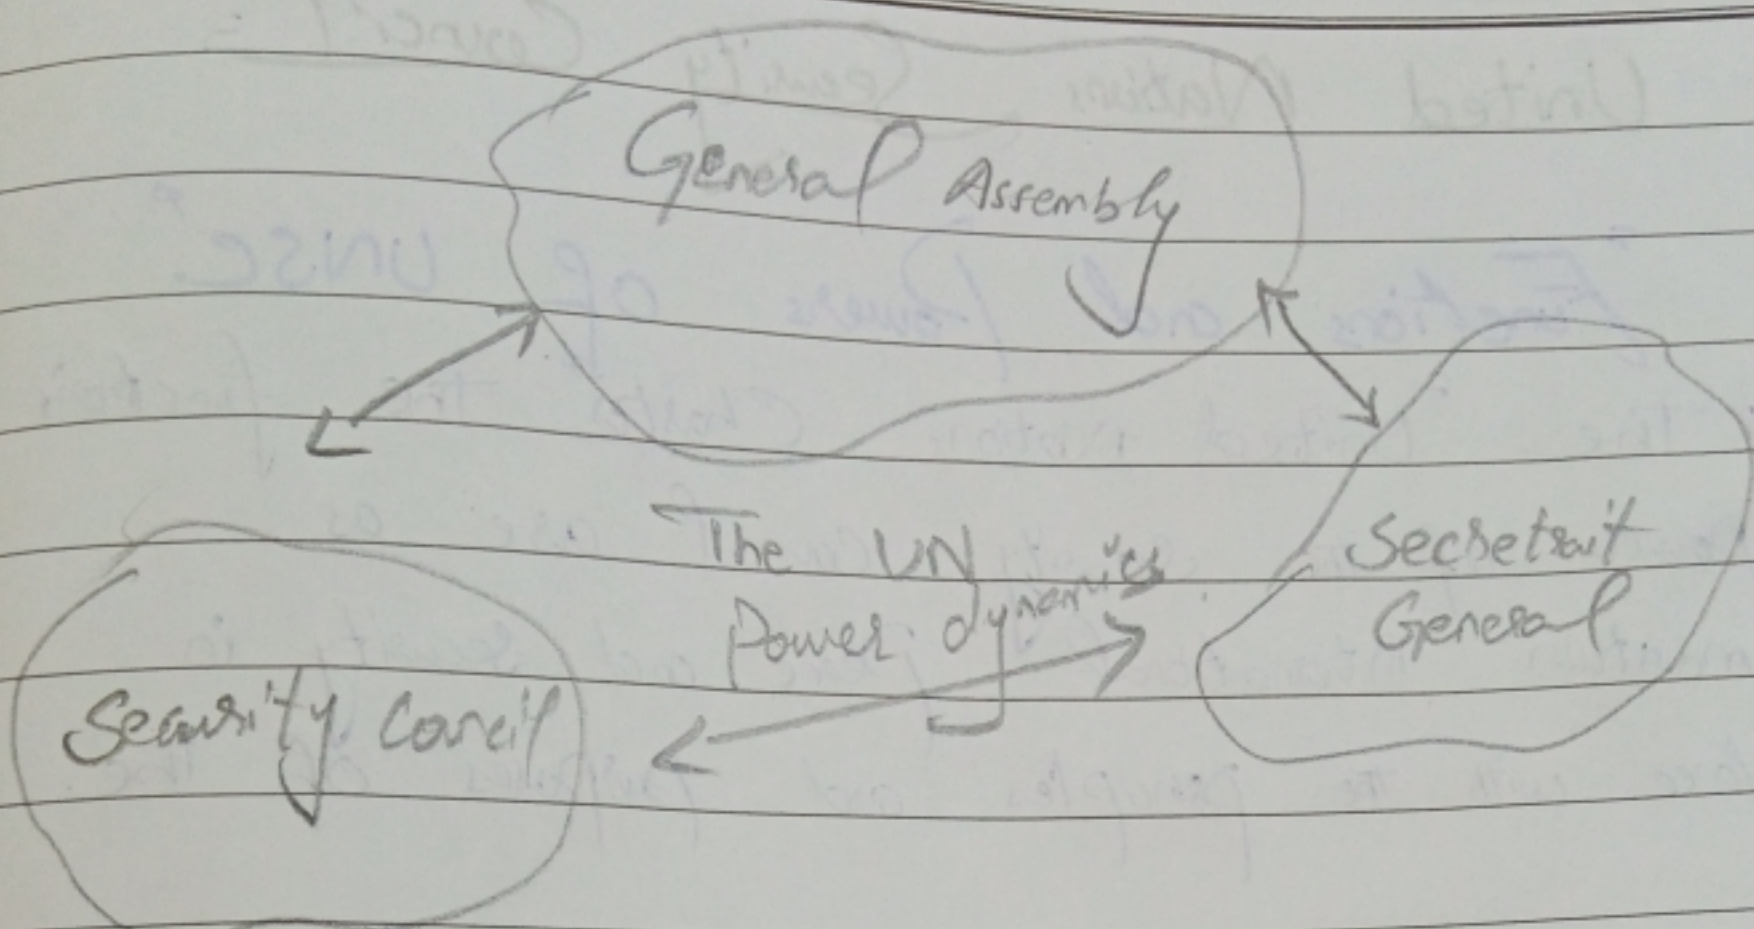 General Assembly
The UN
Power dynamics
Secretrait
General
Security Concil